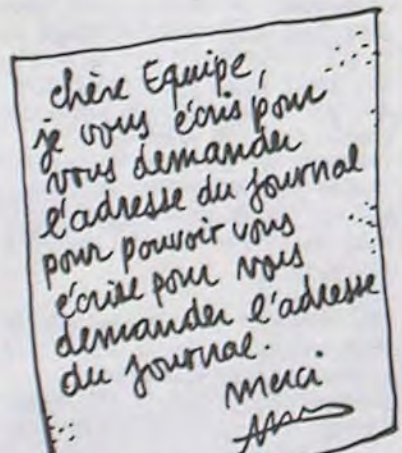 chère Equipe,
je vous écris pour
vous demander
l'adresse du journal
pour pouvoir vous
écrire pour vous
demander l'adresse
du journal.
Merci